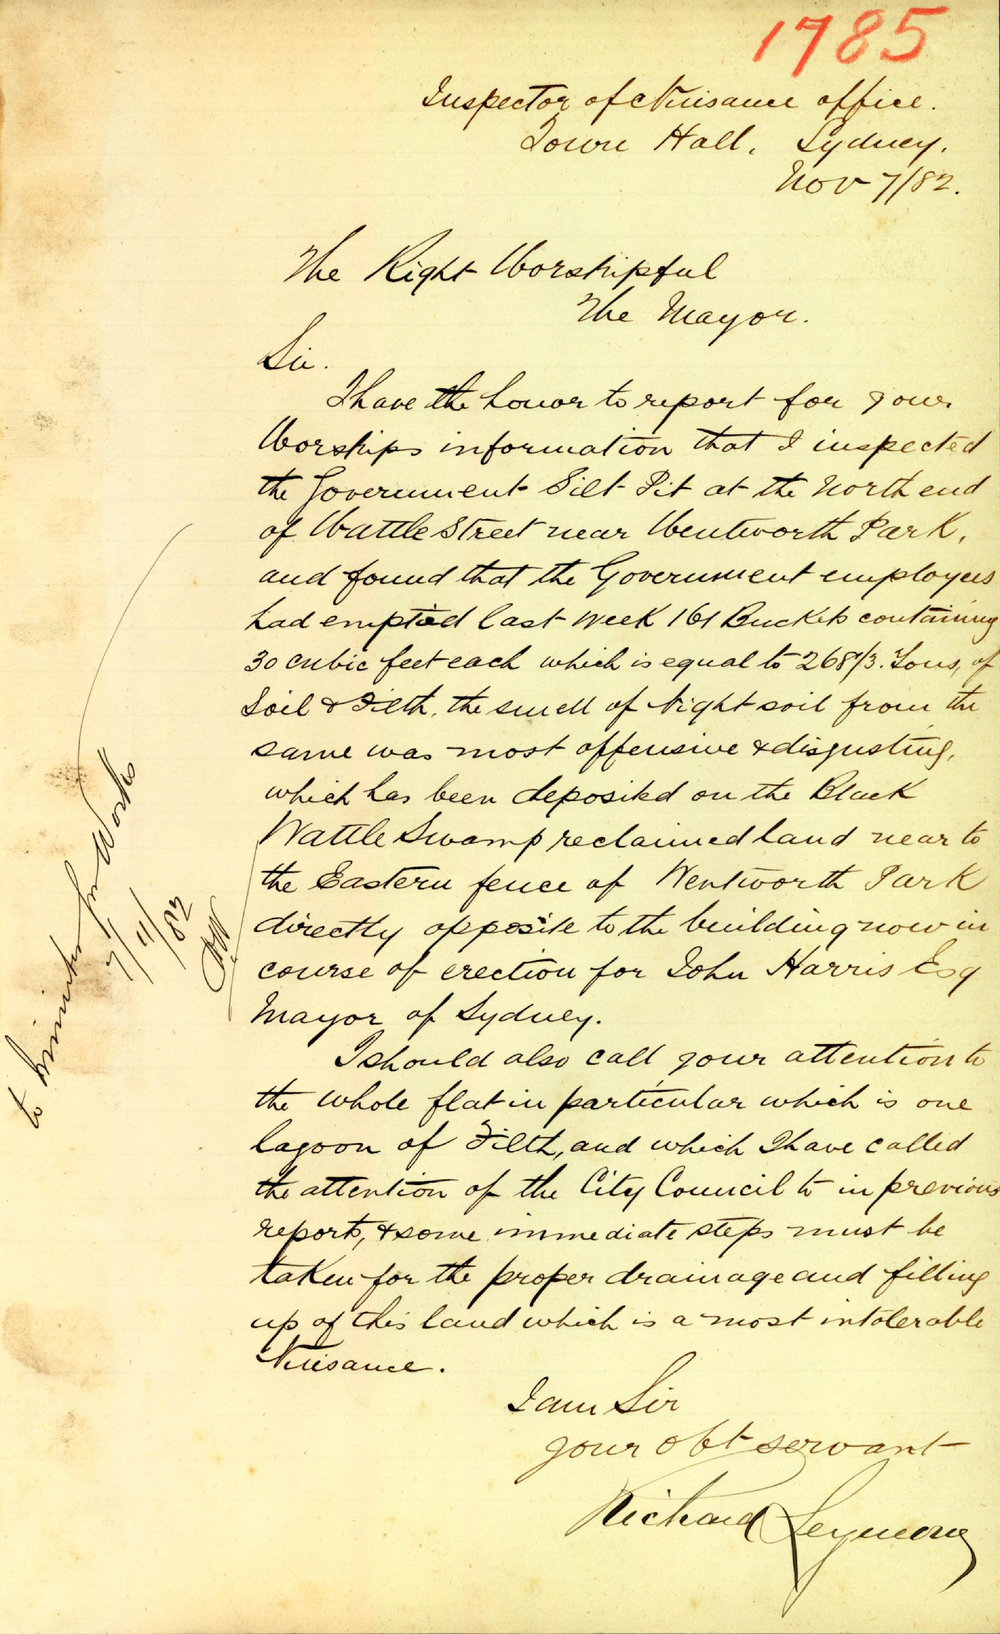 1785
Inspector of Nuisance office.
Town Hall, Sydney.
Nov 7/82.
The Right Worshipful
The Mayor.
Sir.
I have the honor to report for your
Worships information that I inspected
the Government Silt Pit at the North end
of Wattle Street near Wentworth Park,
and found that the Government employees
had emptied last week 161 Buckets containing
30 cubic feet each which is equal to 268 1/3 Tons, of
Soil & Filth, the smell of Night soil from the
same was most offensive & disgusting,
which has been deposited on the Black
Wattle Swamp reclaimed land near to
the Eastern fence of Wentworth Park
directly opposite to the building now in
course of erection for John Harris Esq
Mayor of Sydney.
I should also call your attention to
the whole flat in particular which is one
lagoon of Filth, and which I have called
the attention of the City Council to in previous
report, & some immediate steps must be
taken for the proper drainage and filling
up of this land which is a most intolerable
Nuisance.
I am Sir
your obt servant
Richard Seymour
to Minister for Works
7/11/82